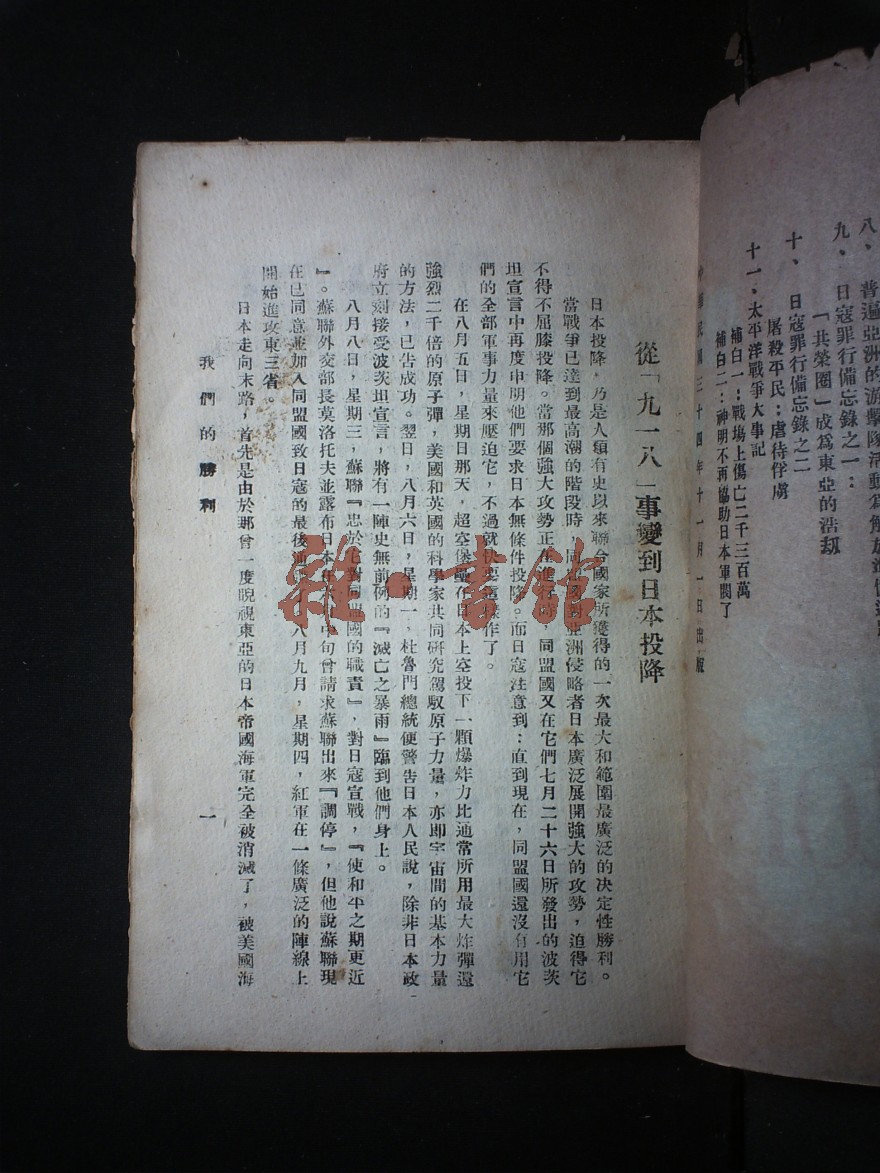 八、普遍亞洲的游擊隊活動爲解放
九、日寇罪行備忘錄之一：
「共榮圈」成爲東亞的浩劫
十、日寇罪行備忘錄之二
屠殺平民：虐待俘虜
十一、太平洋戰爭大事記
補白一：戰場上傷亡二千三百萬
補白二：神明不再協助日本軍閥了
民國三十四年十一月一日出版
從「九一八」事變到日本投降
日本投降，乃是人類有史以來聯合國家所獲得的一次最大和範圍最廣泛的決定性勝利。
當戰爭已達到最高潮的階段時，同盟國對亞洲侵略者日本廣泛展開強大的攻勢，迫得它
不得不屈膝投降。當那個強大攻勢正在進行時，同盟國又在它們七月二十六日所發出的波茨
坦宣言中再度申明他們要求日本無條件投降。而日寇注意到：直到現在，同盟國還沒有用它
們的全部軍事力量來壓迫它，不過就快要這樣作了。
在八月五日，星期日那天，超空堡壘在日本上空投下一顆爆炸力比通常所用最大炸彈還
強烈二千倍的原子彈，美國和英國的科學家共同研究駕馭原子力量，亦即宇宙間的基本力量
的方法，已告成功。翌日，八月六日，星期一，杜魯門總統便警告日本人民說，除非日本政
府立刻接受波茨坦宣言，將有一陣史無前例的『滅亡之暴雨』臨到他們身上。
八月八日，星期三，蘇聯『忠於它對同盟國的職責』，對日寇宣戰，『使和平之期更近
』。蘇聯外交部長莫洛托夫並露布日本在六月中旬曾請求蘇聯出來『調停』，但他說蘇聯現
在已同意並加入同盟國致日寇的最後通牒。八月九月，星期四，紅軍在一條廣泛的陣線上
開始進攻東三省。
日本走向末路，首先是由於那曾一度睨視東亞的日本帝國海軍完全被消滅了，被美國海
我們的勝利
一
雜·書館